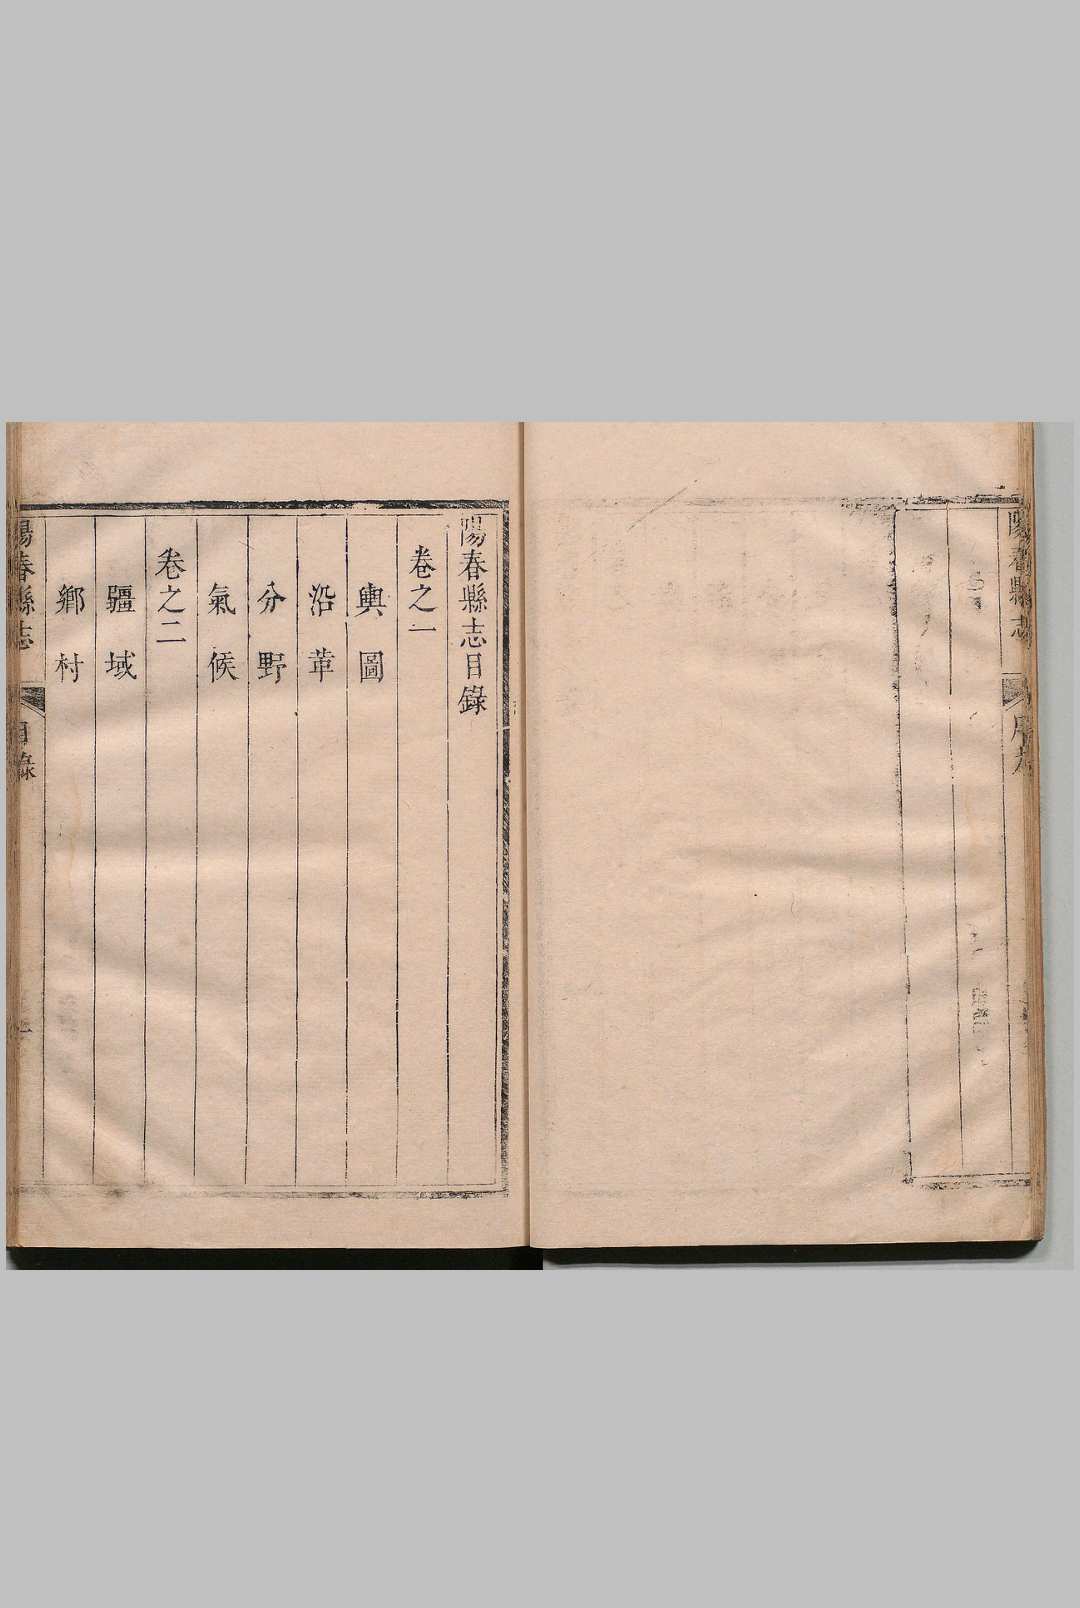 陽春縣志
陽春縣志目錄
卷之一
輿圖
沿革
分野
氣候
卷之二
疆域
鄉村
陽春縣志
目錄